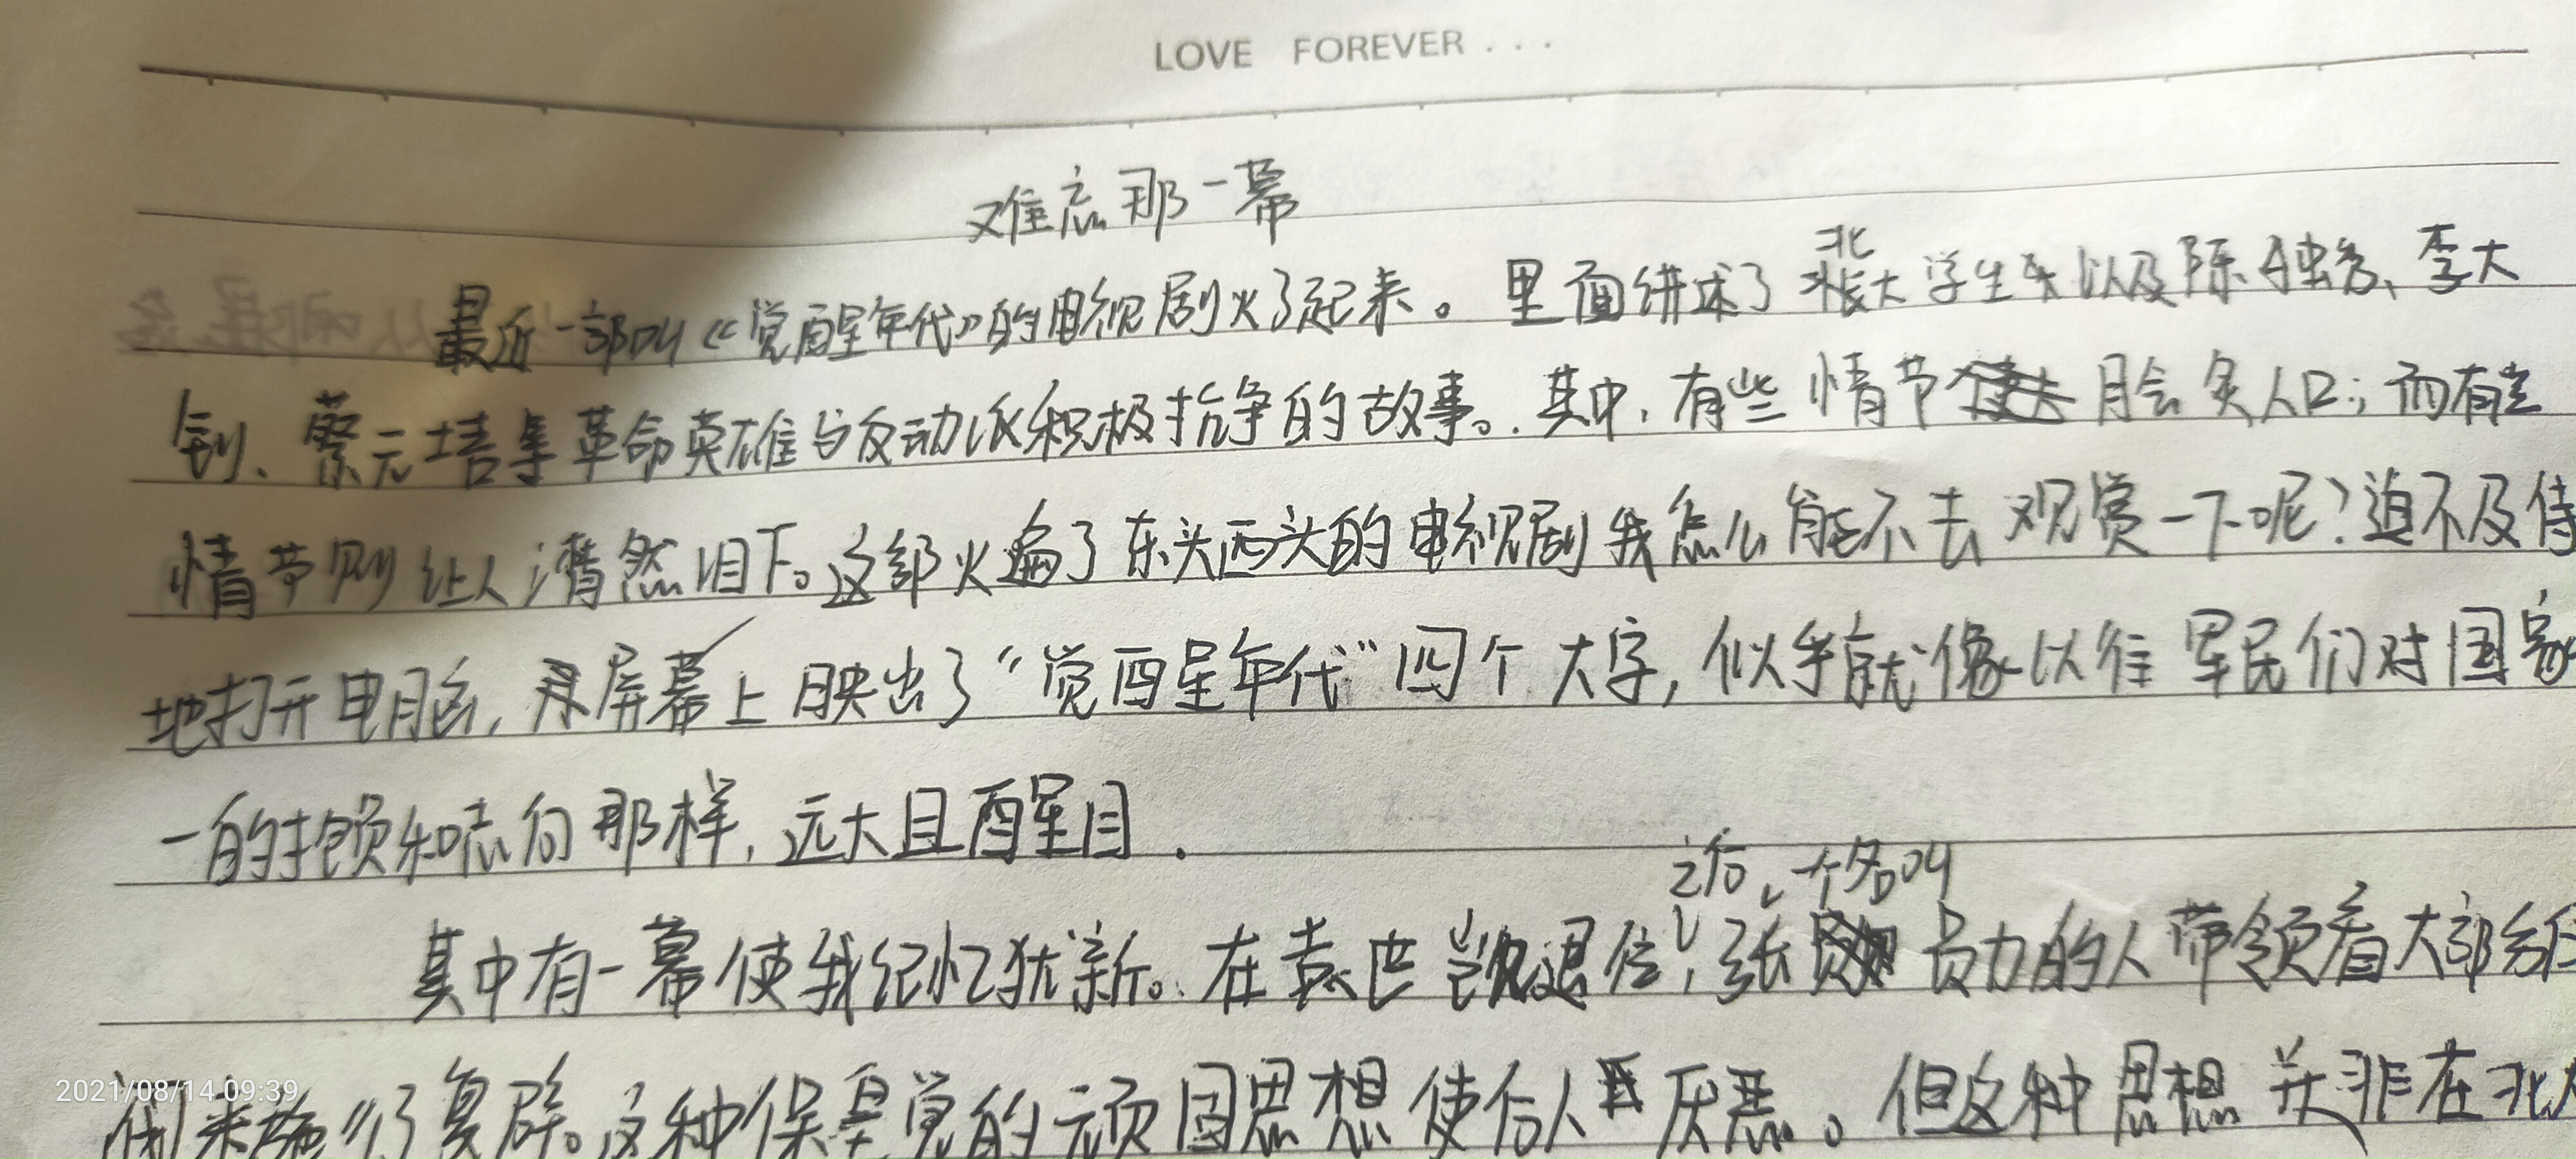 LOVE FOREVER ...
难忘那一幕
最近一部叫《觉醒年代》的电视剧火了起来。里面讲述了北大学生以及陈独秀、李大
钊、蔡元培等革命英雄与反动派积极抗争的故事。其中,有些情节脍炙人口;而有些
情节则让人潸然泪下。这部火遍了东头西头的电视剧我怎么能不去观赏一下呢?迫不及待
地打开电脑,屏幕上映出了“觉醒年代”四个大字,似乎就像以往军民们对国家
一的担负和志向那样,远大且醒目.
其中有一幕使我记忆犹新。在袁世凯退位之后,一个名叫张勋的人带领着大部分
复辟。这种保皇党的顽固思想使后人厌恶。但这种思想并非在北大
2021/08/14 09:39